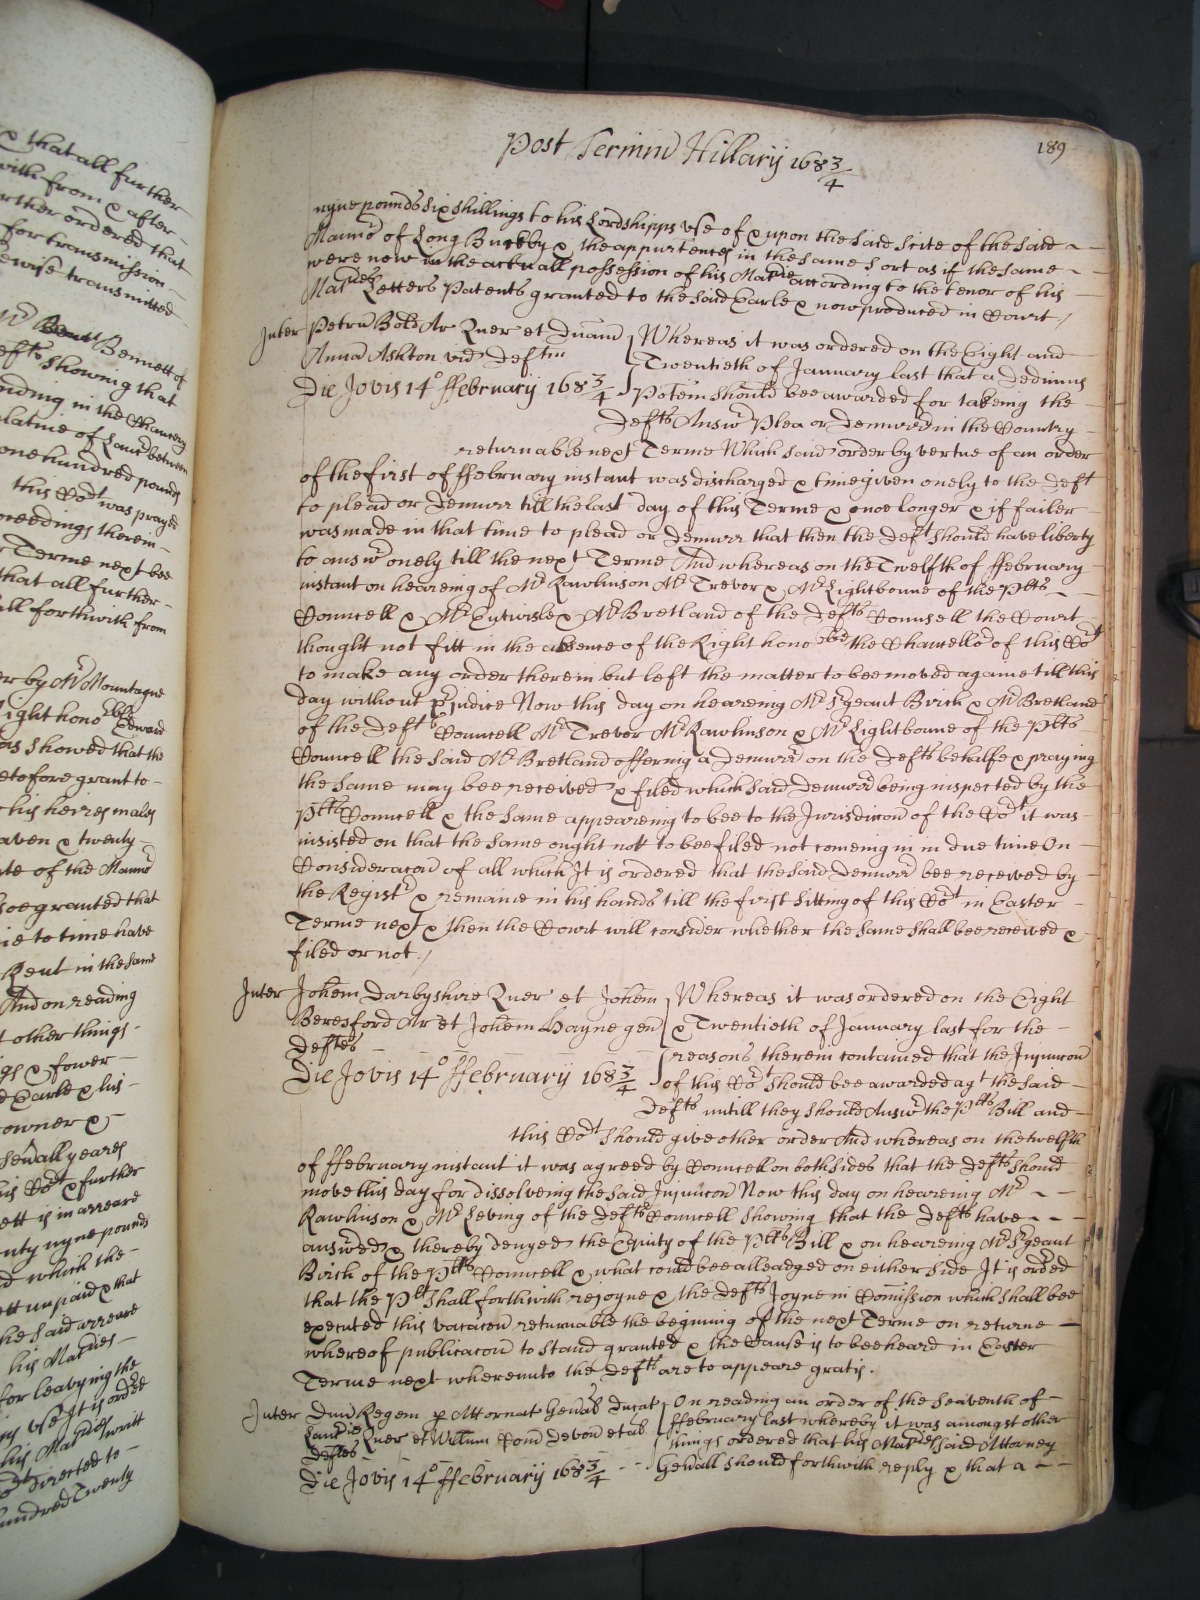 & that all further
with from & after -
rther ordered that
for transmission -
ewise transmitted
Bennett of
efts showing that
nding in the Chancery
latine of Lancr between
one hundred pounds
this Cort was prayed
ceedings therein -
Terme next bee
that all further -
all forthwith from
er by Mr Mountague
Right honoble Edward
as showed that the
etofore grant to -
his heires males
eaven & twenty -
ite of the Mannor
soe granted that
ie to time have
Rent in the same
And on reading
t other things -
gs & fower -
Earle & his -
owner & -
seuall yeares
his Cort & further
ett is in arreare
nty nyne pounds
d which the -
ett unpaid & that
the said arreare
his Maties -
for leavying the
ny use It is ordred
his Maties writt
directed to -
undred Twenty
Post Terminu Hillarij 168¾
189
nyne pounds six shillings to his Lordshipps use of & upon the said Scite of the said -
Mannor of Long Buckby & the appurtences in the same sort as if the same - -
were now in the actuall possession of his Matie according to the tenor of his -
Maties Letters Patents granted to the said Earle & now produced in Court /
Inter Petru Bold Ar Quer et Duand
Anna Ashton vid Deftm
Die Jovis 14o ffebruarij 168¾
Whereas it was ordered on the Eight and
Twentieth of January last that a Dedimus
Potem should bee awarded for takeing the -
Defts Answr Plea or Demurrr in the Country -
returnable next Terme Which said order by vertue of an order
of the first of ffebruary instant was discharged & time given onely to the Deft
to plead or Demurr till the last day of this Terme & noe longer & if failer -
was made in that time to plead or Demurr that then the Deft should have liberty
to answr onely till the next Terme And whereas on the Twelfth of ffebruary -
instant on heareing of Mr Rawlinson Mr Trevor & Mr Lightboune of the Plts - -
Councell & Mr Entwisle & Mr Bretland of the Defts Counsell the Court
thought not fitt in the absence of the Right honoble the Chancellor of this Cort
to make any order therein but left the matter to bee moved againe till this
day without prjudice Now this day on heareing Mr Sgeant Birch & Mr Bretland
of the Defts Councell Mr Trevor Mr Rawlinson & Mr Lightboune of the Plts
Councell the said Mr Bretland offering a Demurrr on the Defts behalfe & praying
the same may bee received & filed which said Demurrr being inspected by the
Plts Councell & the same appeareing to bee to the Jurisdiccon of the Cort it was -
insisted on that the same ought not to bee filed not comeing in in due time On -
Consideracon of all which It is ordered that the said Demurrr bee received by
the Registr & remaine in his hands till the first sitting of this Cort in Easter -
Terme next & then the Court will consider whether the same shall bee received &
filed or not /
Inter Johem Darbyshire Quer et Johem
Beresford Ar et Johem Hayne gen
Deftes
Die Jovis 14o ffebruarij 168¾
Whereas it was ordered on the Eight
& Twentieth of January last for the -
reasons therein contained that the Injuncon
of this Cort should bee awarded agt the said -
Defts untill they should Answr the Plts Bill and -
this Cort should give other order And whereas on the twelfth
of ffebruary instant it was agreed by Councell on both sides that the Defts should
move this day for dissolveing the said Injuncon Now this day on heareing Mr - -
Rawlinson & Mr Leving of the Defts Councell showing that the Defts have - - -
answred & thereby denyed the Equity of the Plts Bill & on heareing Mr Sgeant
Birch of the Plts Councell & what could bee alleadged on either side It is ordred
that the Plt shall forthwith rejoyne & the Defts Joyne in Comission which shall bee
executed this vacacon returnable the begining of the next Terme on returne -
whereof publicacon to stand granted & the Cause is to bee heard in Easter
Terme next whereunto the Defts are to appeare gratis.
Inter Dnu Regem p Attornat Genal Ducat
Lancastrie Quer et Willum Com Devon et al
Deftes
Die Jovis 14o ffebruarij 168¾ - - -
On reading an order of the Seaventh of -
ffebruary last whereby it was amongst other
things ordered that his Maties said Attorney
Genall should forthwith reply & that a - -